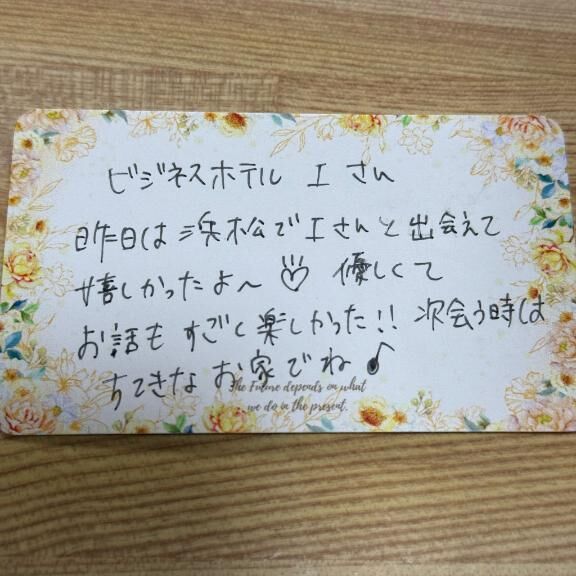 ビジネスホテル Iさん
昨日は浜松でIさんと出会えて
嬉しかったよ〜♡ 優しくて
お話もすごく楽しかった!! 次会う時は
すてきなお家でね♪
The Future depends on what
we do in the present.